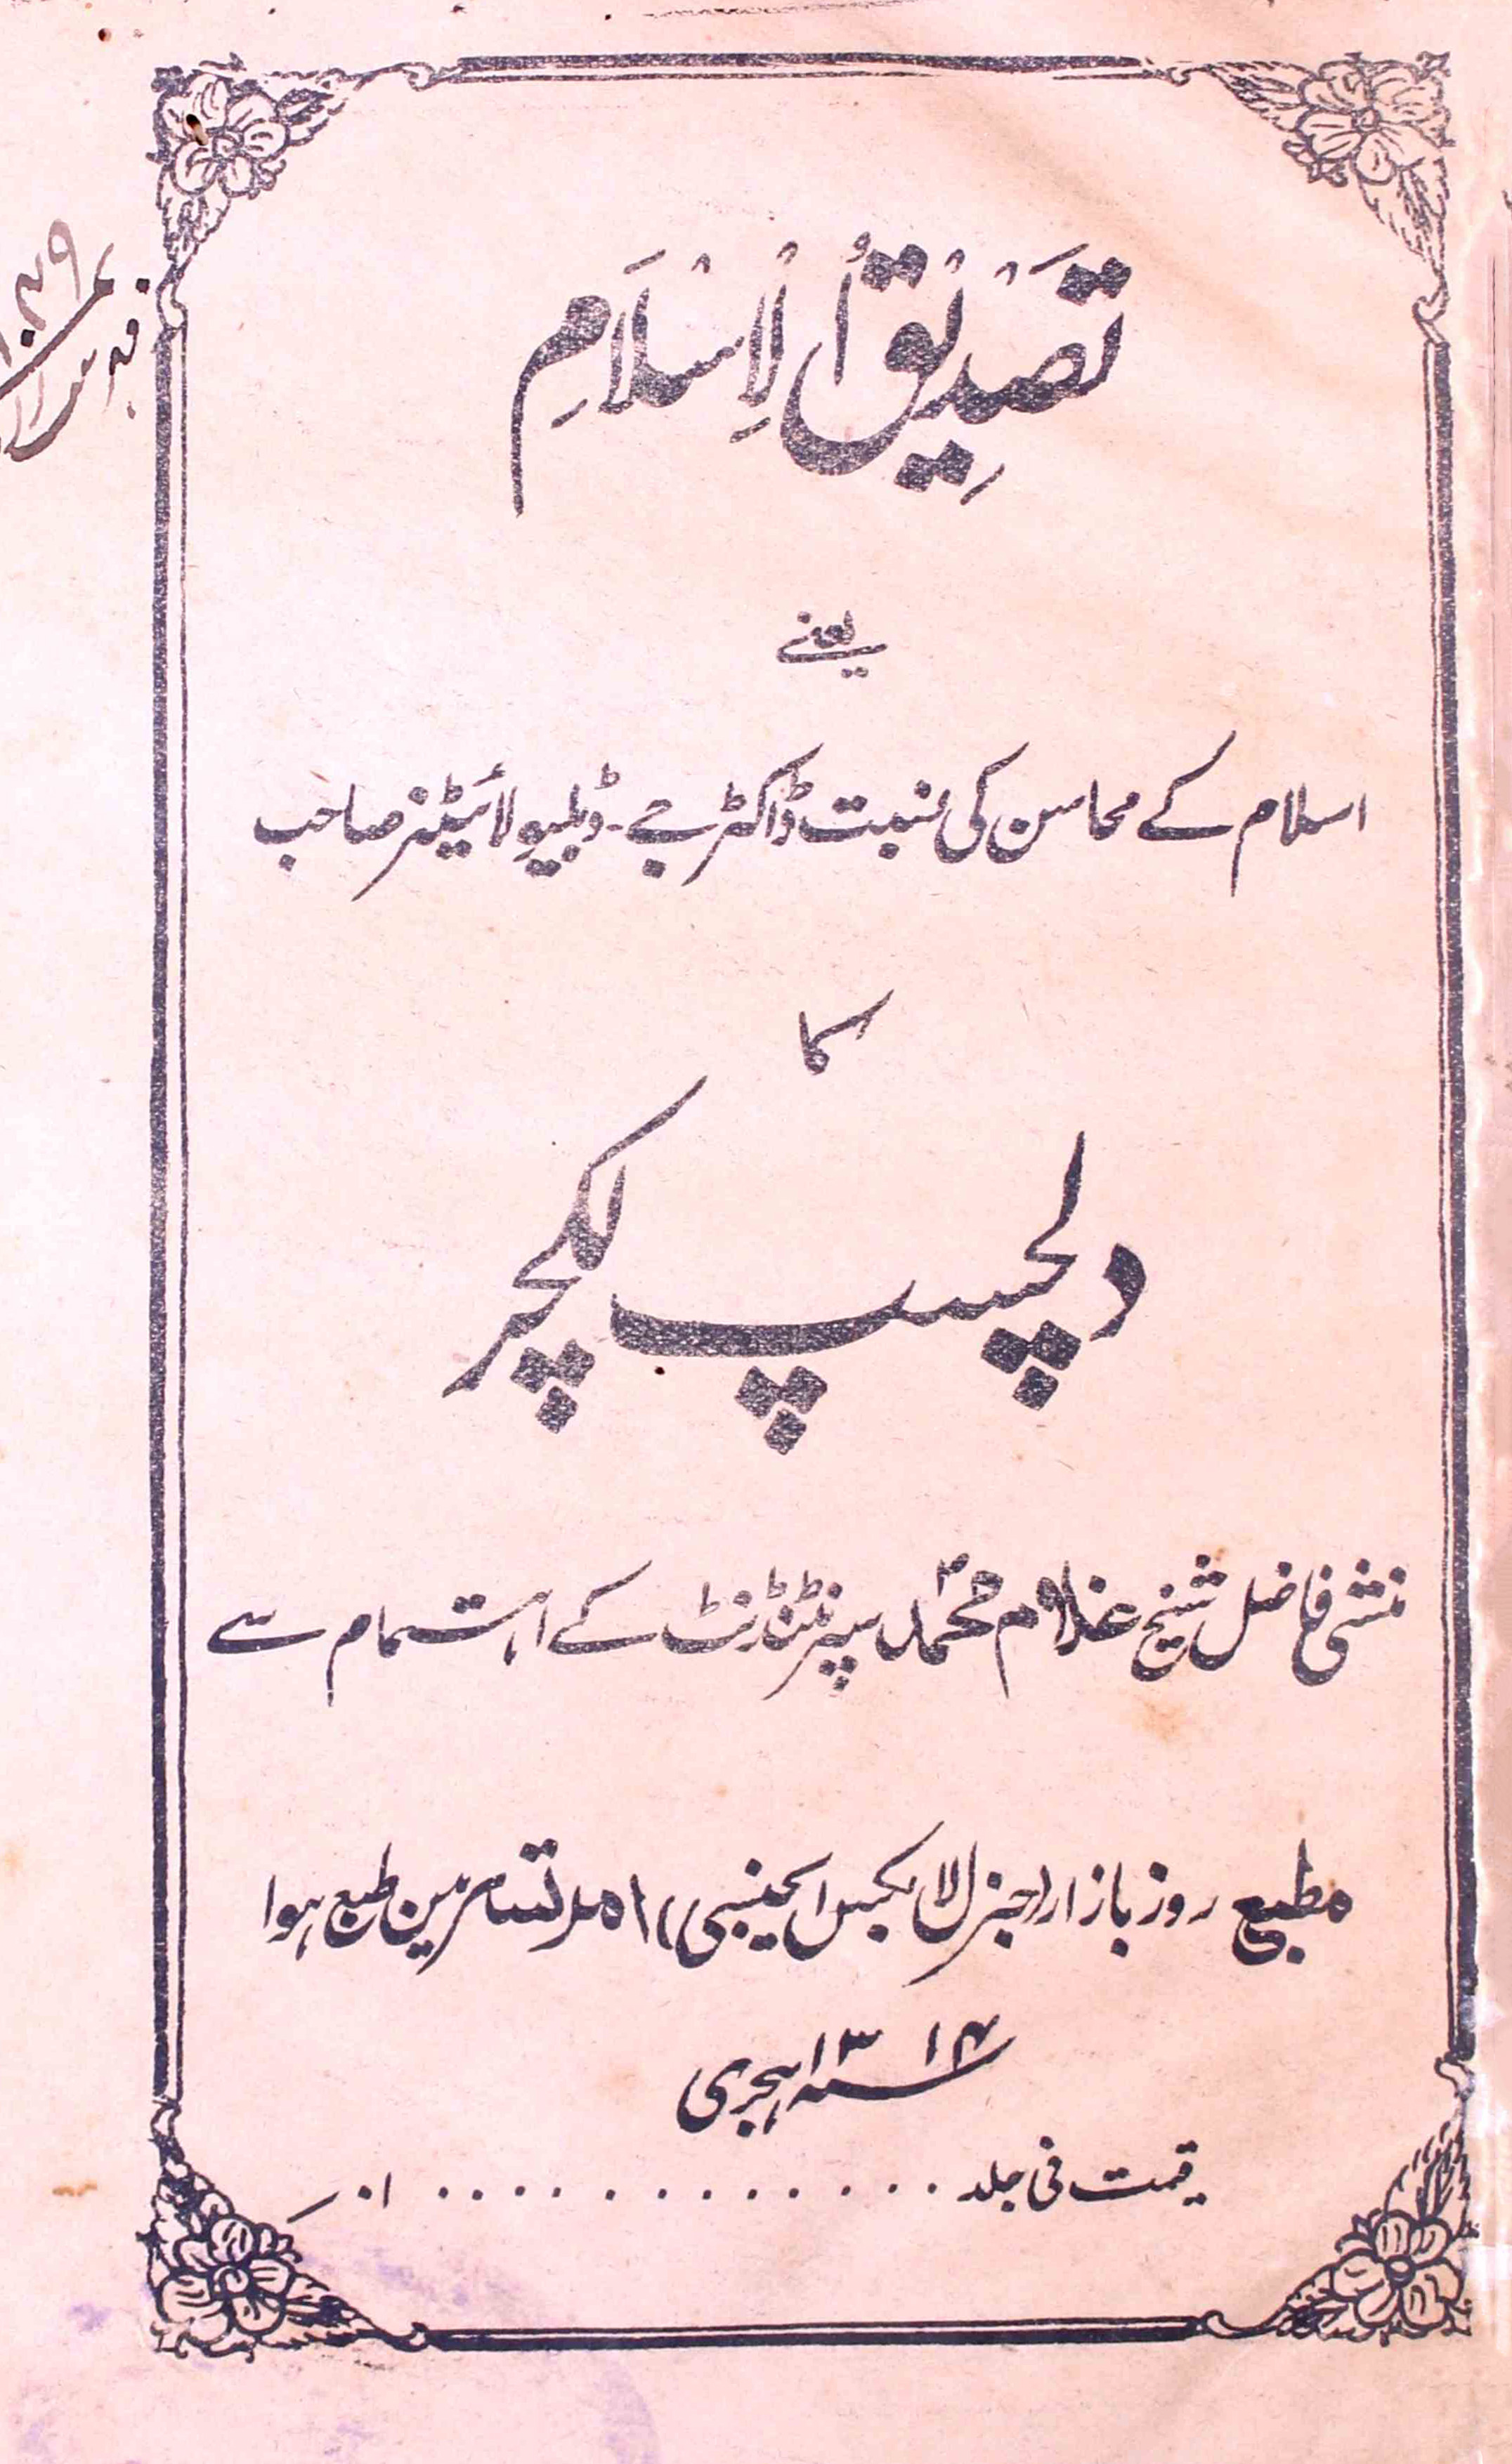 تَصْدِيْقُ الْاِسْلَامِ
یعنے
اسلام کے محاسن کی نسبت ڈاکٹر جے۔ ڈبلیو لائیٹنر صاحب
کا
دلچسپ لکچر
منشی فاضل شیخ غلام محمدؐ سپرنٹنڈنٹ کے اہتمام سے
مطبع روز بازار (جنرل لا بکس ایجنسی) امرتسر مین طبع ہوا
سنہ ۱۳۱۴ ہجری
قیمت فی جلد . . . . . . . . . . . . . . ۱۰ر